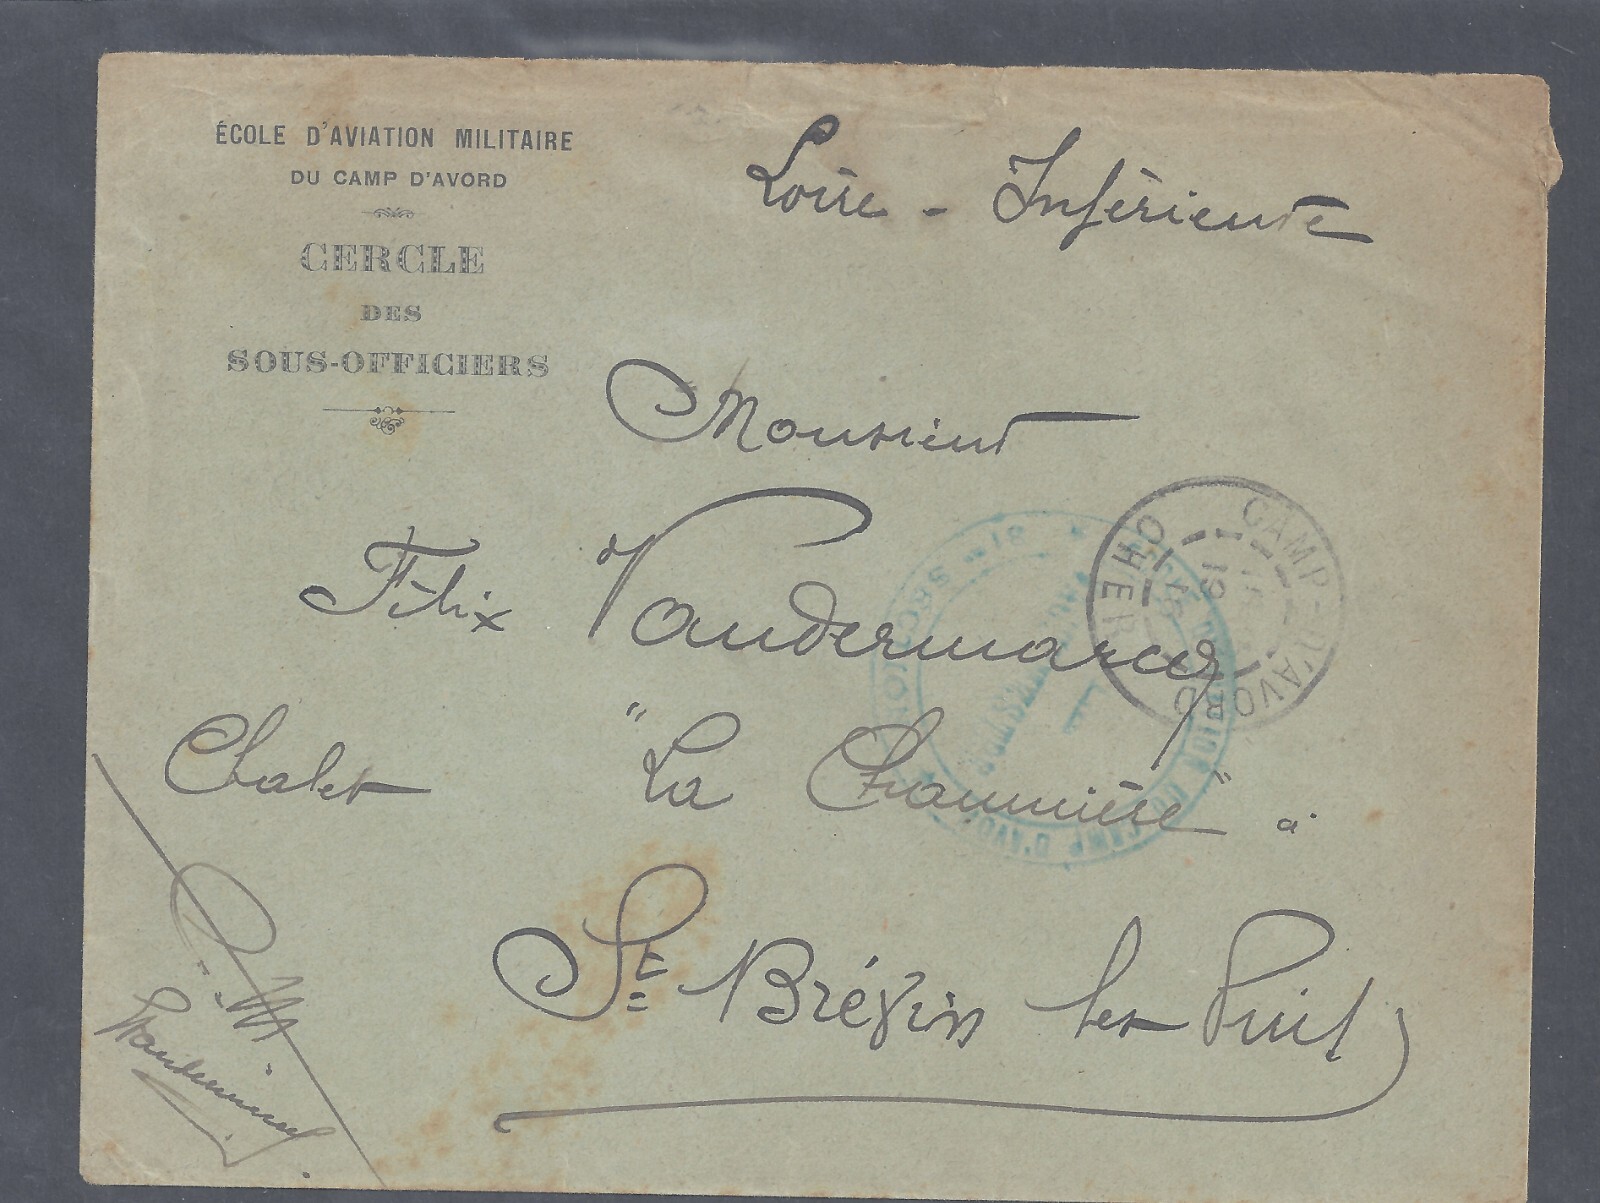 ÉCOLE D'AVIATION MILITAIRE
DU CAMP D'AVORD
CERCLE
DES
SOUS-OFFICIERS
Loire - Inférieure
Monsieur
Félix Vandermarcq
Chalet "La Chaumière" à
St Brévin les Pins
F. M.
CAMP-D'AVORD
15
19
CHER
CAMP D'AVORD